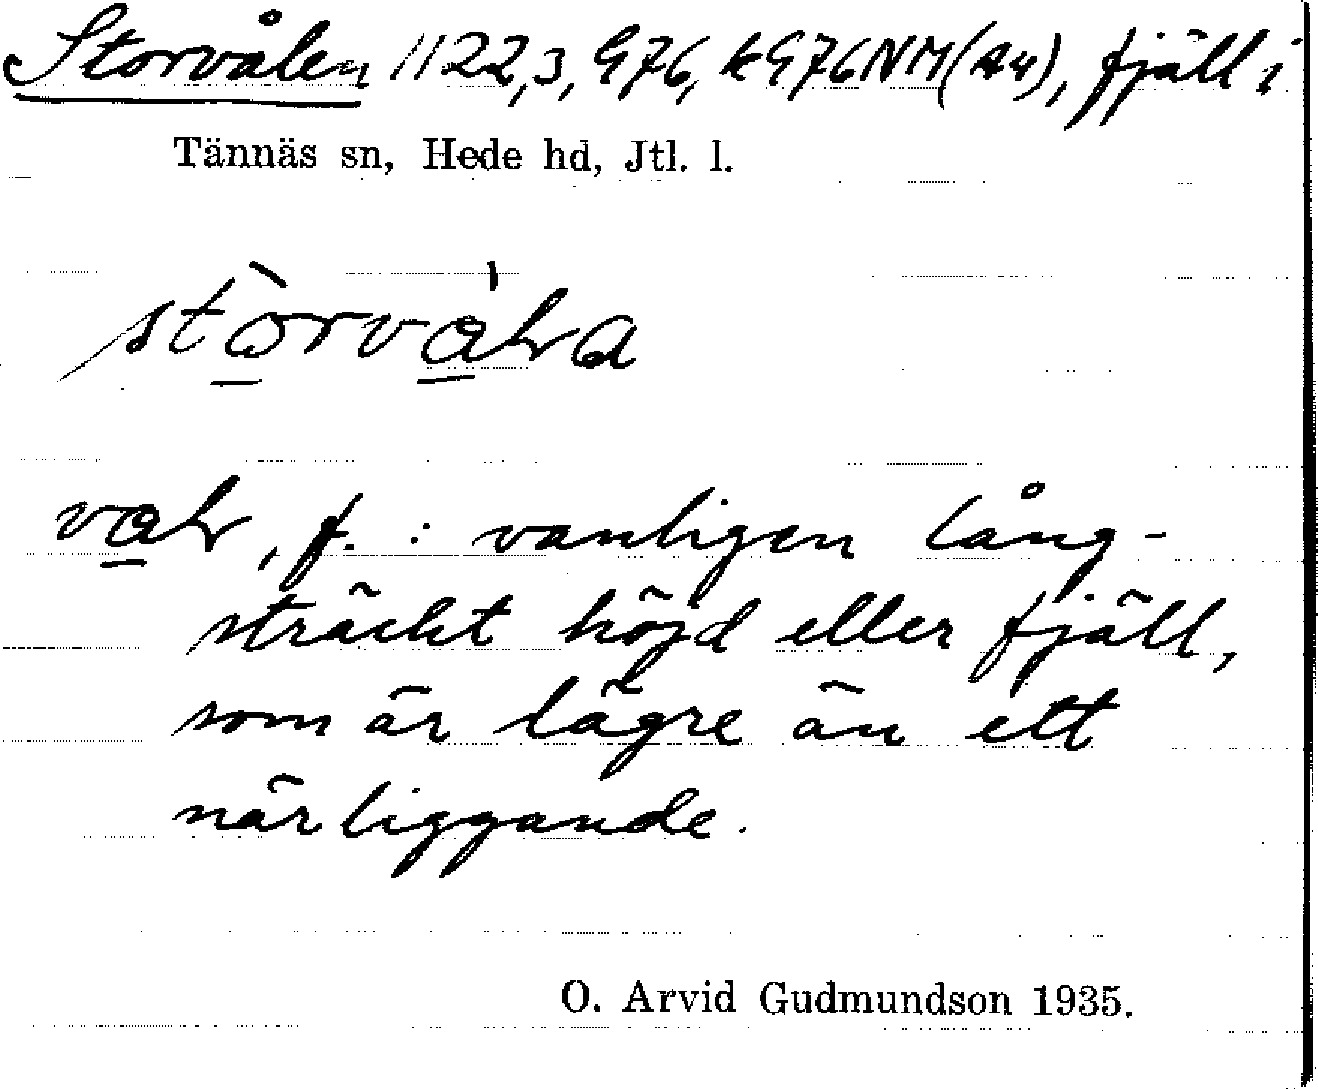 Storvålen 1122,3, G76, kG76NM(A4), fjäll i
Tännäs sn, Hede hd, Jtl. l.
, f. : vanligen lång-
sträckt höjd eller fjäll,
som är lägre än ett
närliggande.
O. Arvid Gudmundson 1935.